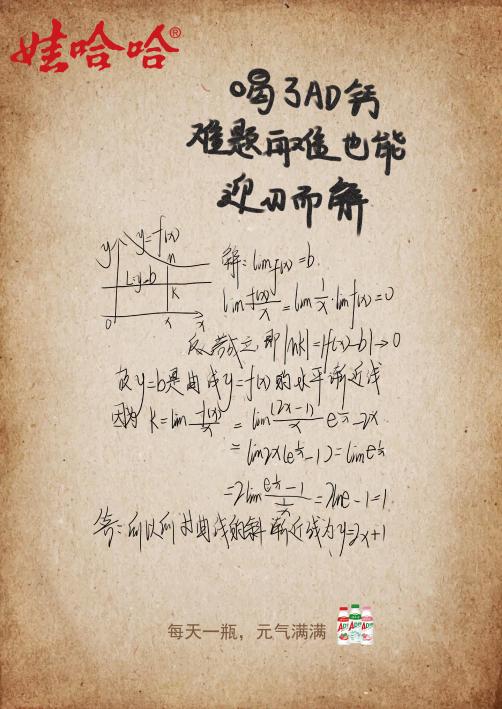 娃哈哈®
喝了AD钙
难题再难也能
迎刃而解
y y=f(x)
n
L:y=b
k
0 x x
解:lim f(x)=b.
lim f(x)/x = lim 1/x · lim f(x)=0
反若成立,即|nk|=|f(x)-b|→0
及y=b是曲线y=f(x)的水平渐近线
因为 k=lim f(x)/x = lim (2x-1)/x e^1/x -2x
= lim2x(e^1/x -1)=lim e^1/x
=2lim e^1/x -1 / 1/x =2lne-1=1
答:所以所求曲线的斜渐近线为y=2x+1
每天一瓶,元气满满